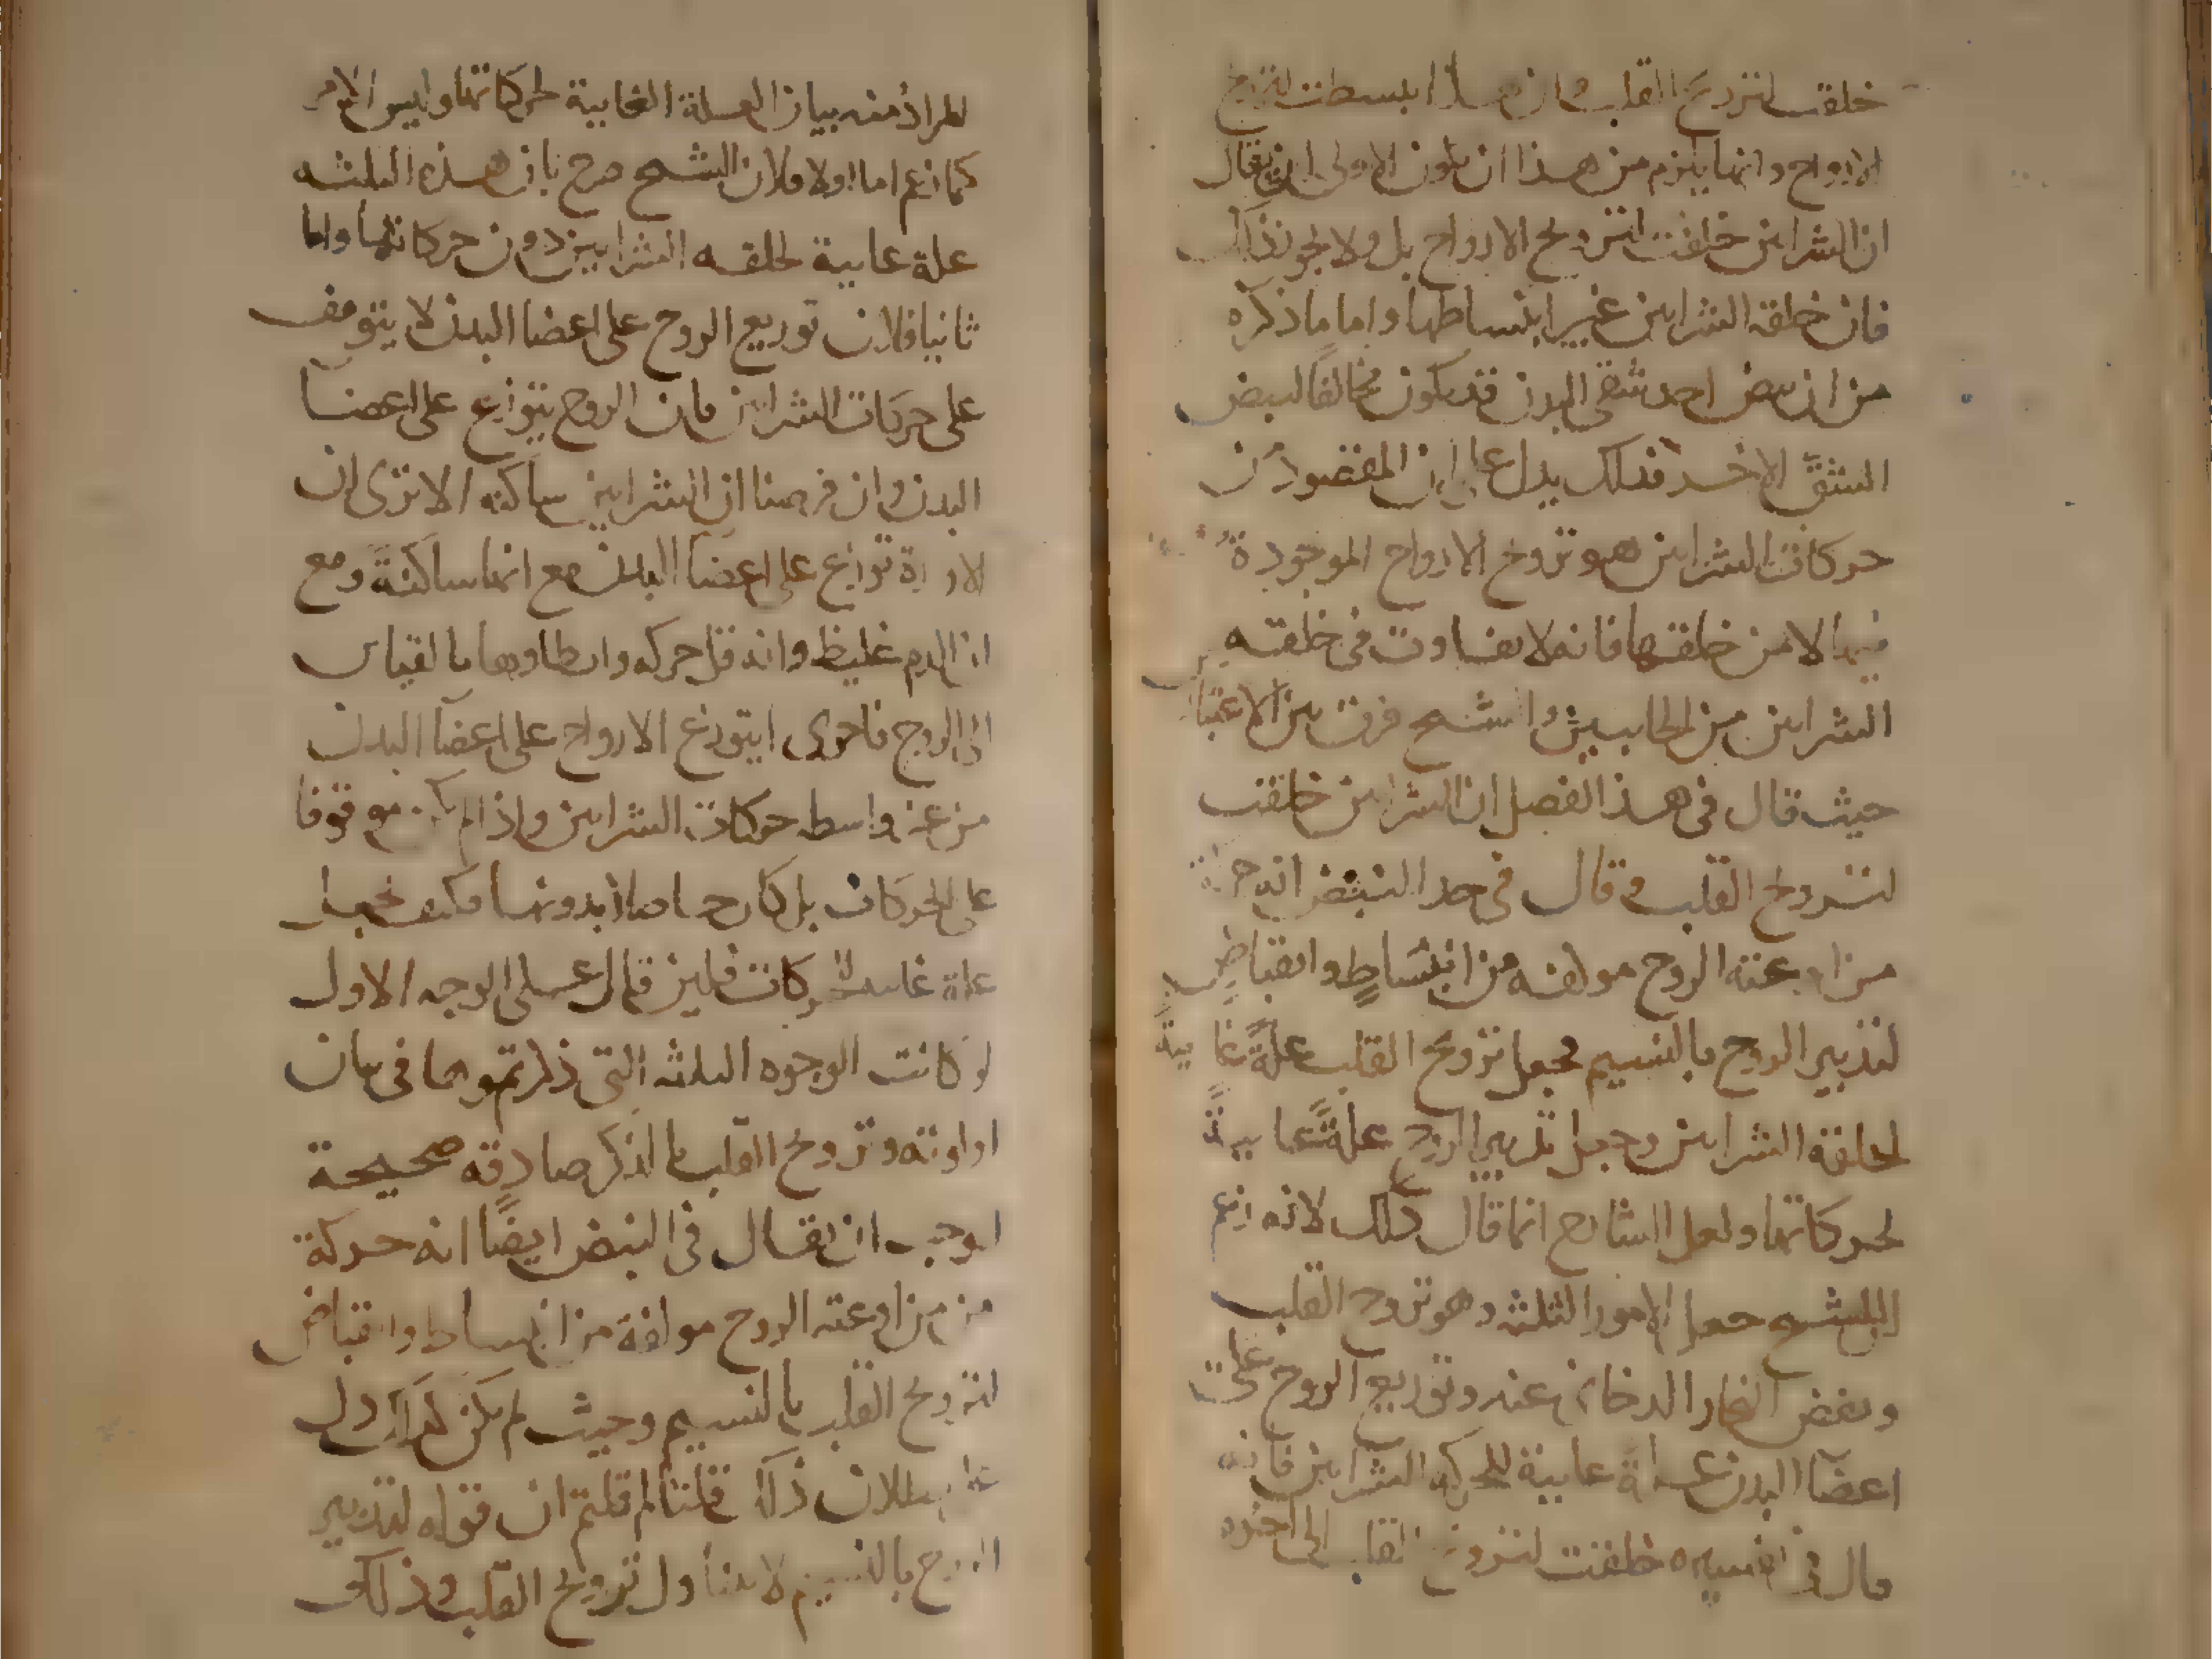 خلقت لترويح القلب وان هذا ابسطت لترويح
الارواح وانما يلزم من هذا ان يكون الاولى ان يقال
ان الشرايين خلقت لترويح الارواح بل ولا يجوز ذلك
فان خلقه الشرايين غير انبساطها واما ما ذكره
من ان نبض احد شقى البدن قد يكون مخالفا لنبض
الشق الاخر فذلك يدل على ان المقصود من
حركات الشرايين هو تروح الارواح الموجودة
فيها لا من خلقتها فانه لا تفاوت فى خلقه
الشرايين من الجانبين والشيخ فرق بين الاعتبار
حيث قال فى هذا الفصل ان الشرايين خلقت
لترويح القلب وقال فى حد النبض انه حركة
من اوعية الروح مولفه من انبساط وانقباض
لتدبير الروح بالنسيم فجعل ترويح القلب علة غايية
لخلقة الشرايين وجعل تدبير الروح علة غايية
لحركاتها ولعل الشارح انما قال ذلك لانه زعم
ان الشيخ جعل الامور الثلثه وهو تروح القلب
ونفض البخار الدخانى عنه وتوزيع الروح على
اعضا البدن علة غايية لحركه الشرايين فانه
قال فى تفسيره خلقت لترويح القلب الى اخره
المراد منه بيان العلة الغايية لحركاتها وليس الامر
كما زعم اما اولا فلان الشيخ صرح بان هذه الثلثه
علة غايية لخلقه الشرايين دون حركاتها واما
ثانيا فلان توزيع الروح على اعضا البدن لا يتوقف
على حركات الشرايين فان الروح يتوزع على اعضا
البدن وان فرضنا ان الشرايين ساكنه الا ترى ان
الاوردة توزع على اعضا البدن مع انها ساكنة ومع
ان الدم غليظ وانه قل حركه وابطاوها بالقياس
الى الروح فاحرى ان يتوزع الارواح على اعضا البدن
من غير واسطه حركات الشرايين واذا لم يكن موقوفا
على الحركات بل كان حاصلا بدونها فكيف يجعل
علة غايية للحركات فلين قال على الوجه الاول
لو كانت الوجوه الثلثه التى ذكرتموها فى بيان
اولويته وتروح القلب بالذكر صادقه صحيحة
لوجب ان يقال فى النبض ايضا انه حركة
من اوعية الروح مولفة من انبساط وانقباض
لترويح القلب بالنسيم وحيث لم يكن كذلك دل
على بطلان ذلك قلنا لم قلتم ان قوله لتدبير
الروح بالنسيم لا يتناول ترويح القلب وذلك